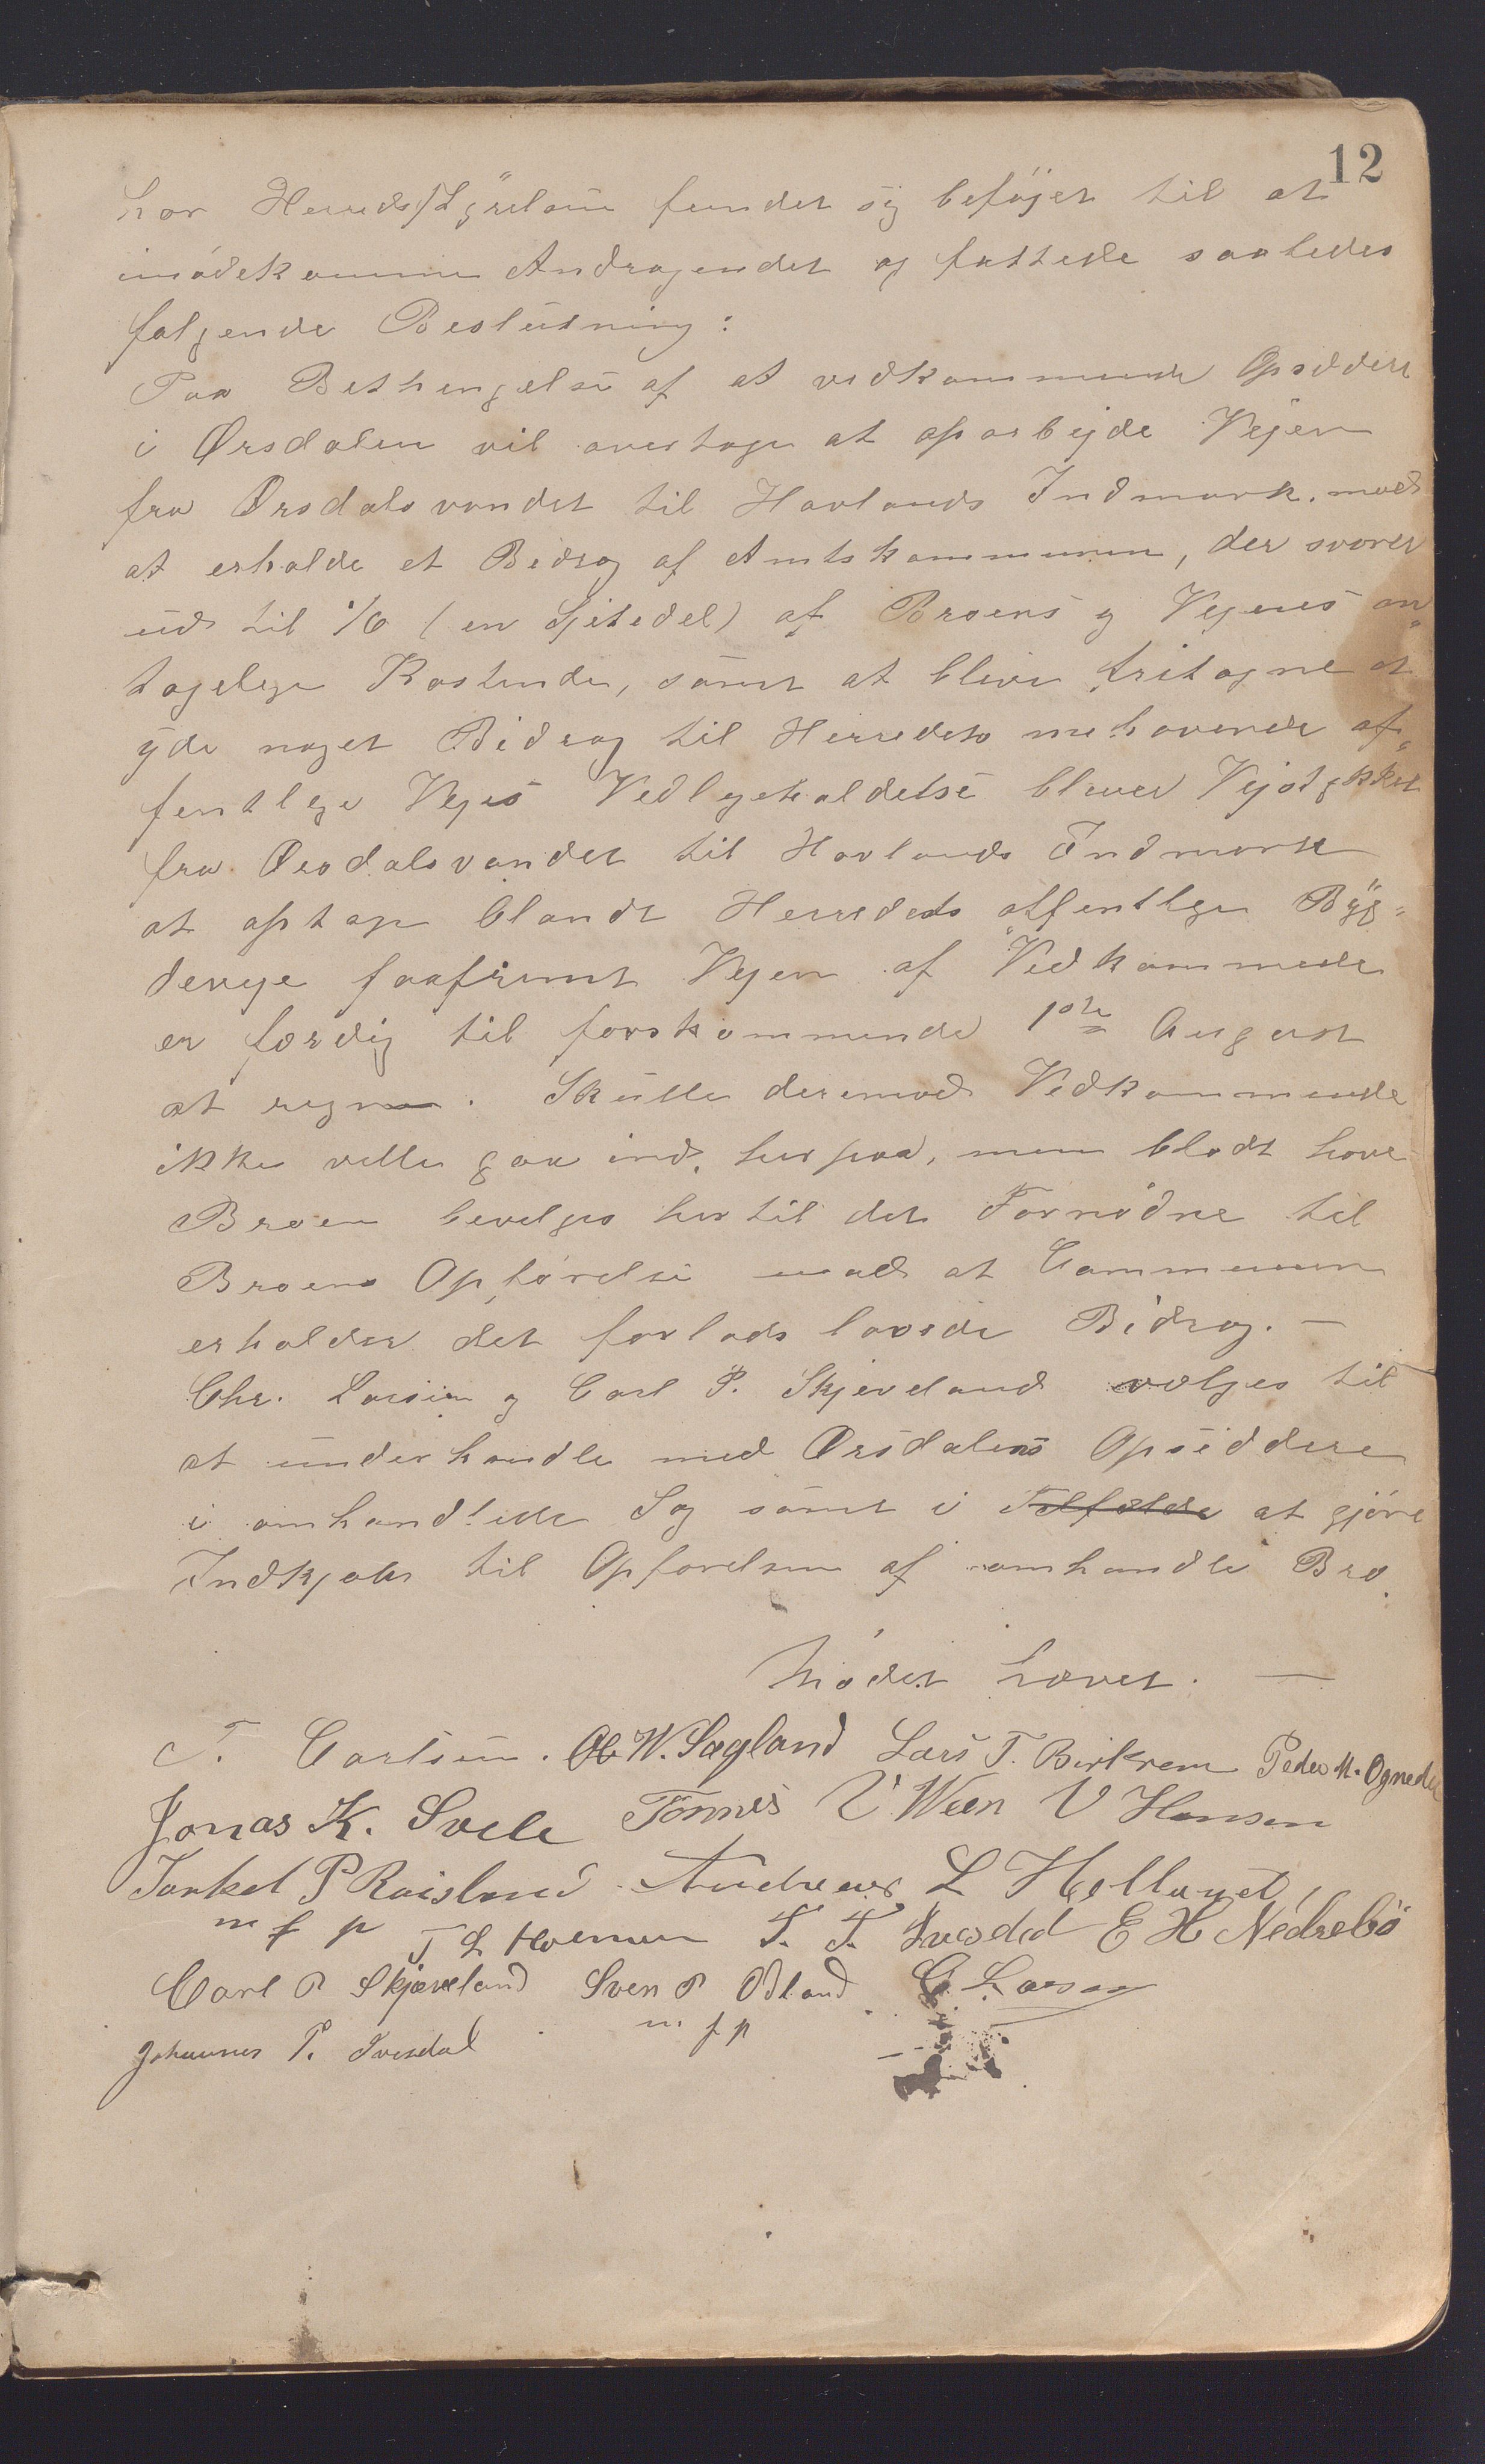 12
har Herredsstyrelsen fundet sig beføjet til at
imødekomme Andragendet og fattede saaledes
følgende Beslutning:
Paa Bethingelse af at vedkommende Opsiddere
i Ørsdalen vil overtage at oparbejde Vejen
fra Ørsdalsvandet til Hovlands Indmark, mod
at erholde et Bidrag af Amtskommunen, der svarer
ud til 1/6 (en Sjetedel) af Broens og Vejenes an„
tagelige Kostende, samt at blive fritagne at
yde noget Bidrag til Herredets mehavende of„
fentlige Vejes Vedligeholdelse bliver Vejstykket
fra Ørsdalsvandet til Hovlands Indmark
at optage blandt Herredets offentlige Byg=
deveje saafremt Vejen af Vedkommende
er færdig til førstkommende 1ste August
at regne. Skulle deremod Vedkommende
ikke ville gaa ind herpaa, men blodt have
Broen bevilges her til det Fornødne til
Broens Opførelse mod at Communen
erholder det forlods lovede Bidrag. —
Chr. Larsen og Carl P. Skjeveland vælges til
at underhandle med Ørsdalens Opsiddere
i omhandlede Sag samt i Tilfælde at gjøre
Indkjøber til Opførelsen af omhandle Bro.
Mødet hævet. —
T. Carlsen. W. Sægland Lars T. Birkrem Peder M. Ognedal
Jonas K. Svele Tønnes V Veen V Hansen
Torkel P Røisland Andreas L Hølland
m f p T L Holmen T. T. Ivesdal E H Nedrebø
Carl P Skjæveland Sven P Ødland C. Larsen
Johannes P. Ivesdal m f p